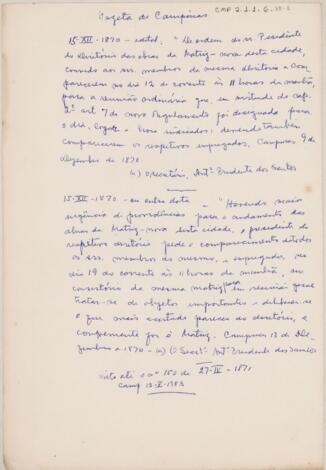 Gazeta de Campinas
CMP 2.1.1.6.
15-XII-1870 - edital, "De ordem do sr. Presidente
do diretório das obras da Matriz-nova desta cidade,
convido aos srs. membros do mesmo diretório a com-
parecerem no dia 12 do corrente às 11 horas da manhã,
para a reunião ordinária que, em virtude do cap.
2º art 7 do novo Regulamento foi designado para
o dia, lugar e hora indicados; devendo também
comparecerem os respetivos empregados. Campinas, 9 de
dezembro de 1870.
(a) Secretário, Antº Prudente dos Santos
15-XII-1870 - em outra data - "Havendo maior
urgência de providências para o andamento das
obras da Matriz-nova desta cidade, o presidente do
respetivo diretório pede o comparecimento de todos
os srs. membros do mesmo, e empregados, no
dia 19 do corrente às 11 horas da manhã, no
consistório da mesma matriz para em reunião geral
tratar-se de objetos importantes e deliberar-se
o que mais acertado parecer ao diretório, e
conveniente for à Matriz. Campinas 13 de De-
zembro de 1870 - (a) O Secrº Antº Prudente dos Santos
visto até o nº 160 de 27-IV-1871
Camp 13-X-1953